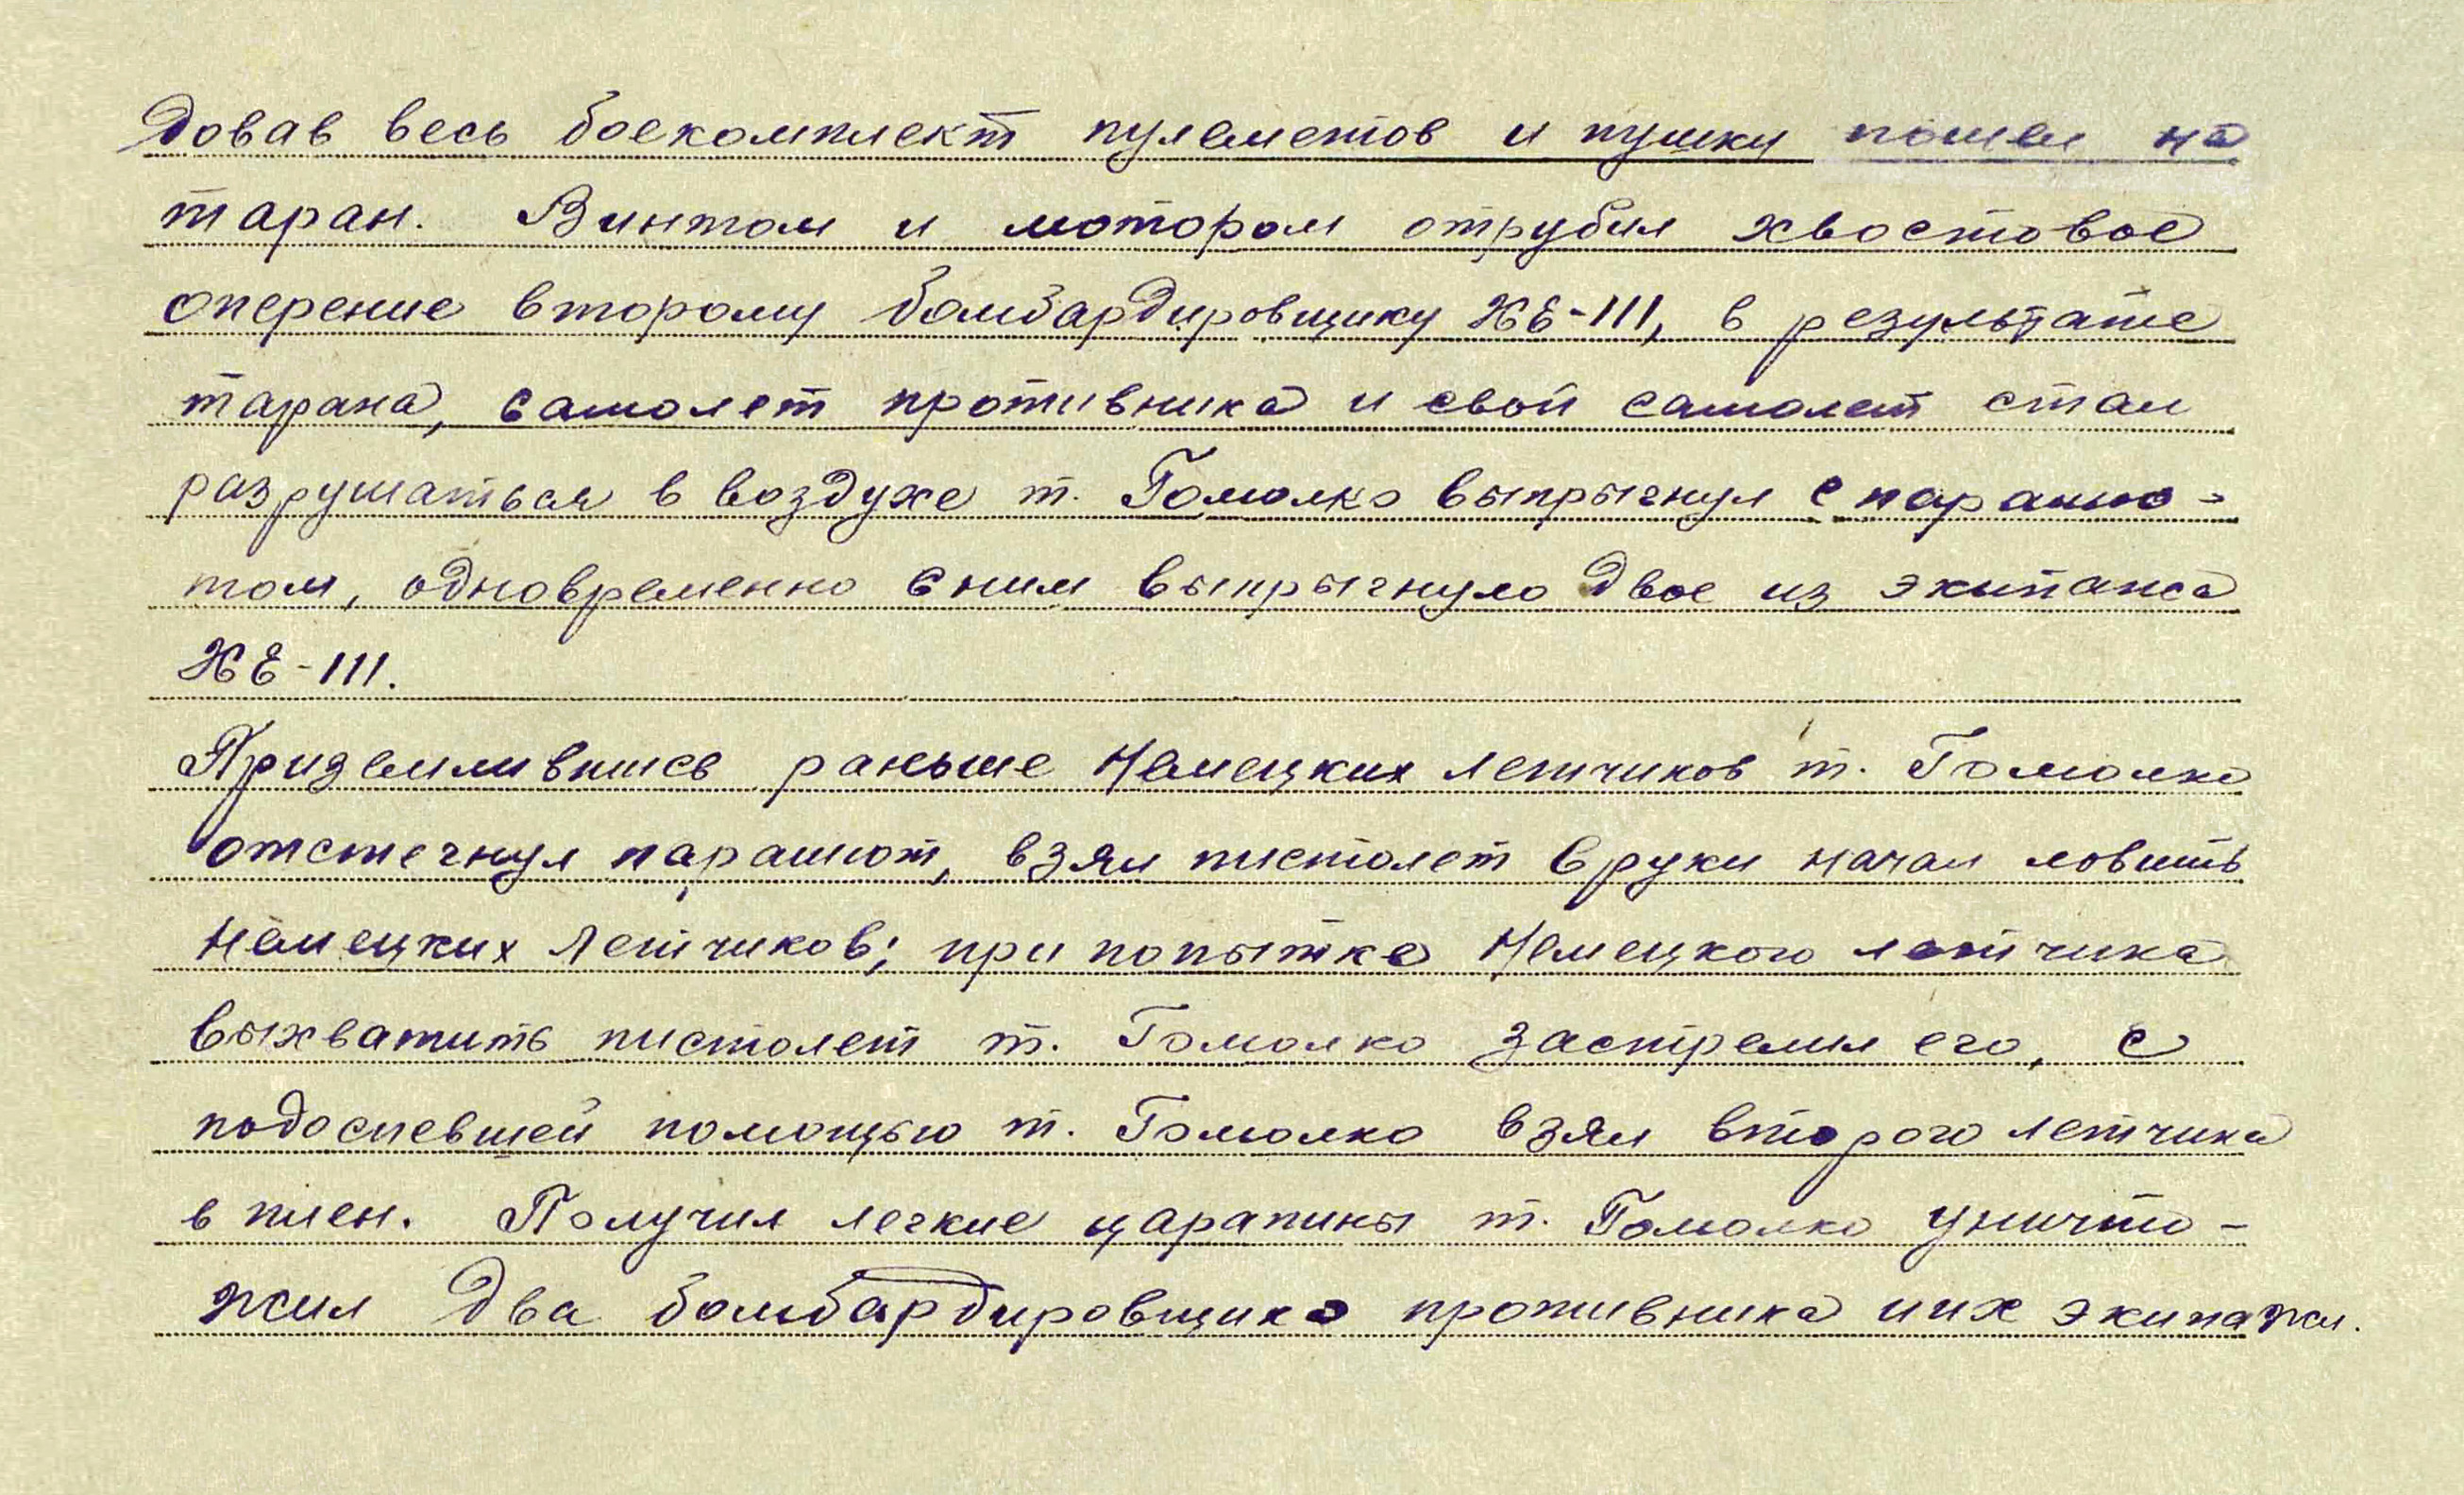 довав весь боекомплект пулеметов и пушки пошел на
таран. Винтом и мотором отрубил хвостовое
оперение второму бомбардировщику ХЕ-111, в результате
тарана, самолет противника и свой самолет стал
разрушаться в воздухе т. Гомолко выпрыгнул с парашю-
том, одновременно с ним выпрыгнуло двое из экипажа
ХЕ-111.
Приземлившись раньше немецких летчиков т. Гомолко
отстегнул парашют, взял пистолет в руки начал ловить
немецких летчиков; при попытке немецкого летчика
выхватить пистолет т. Гомолко застрелил его, с
подоспевшей помощью т. Гомолко взял второго летчика
в плен. Получил легкие царапины т. Гомолко уничто-
жил два бомбардировщика противника и их экипажи.